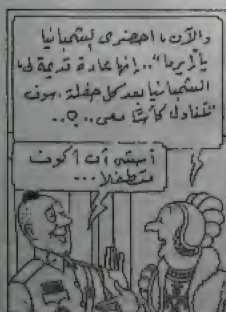 والآن، احضرى لشمبانيا
يا "إيرما"... إنها عادة قديمة لى،
الشمبانيا بعد كل حفلة، سوف
تتناول كأسًا معى..؟..
أخشى أن أكون
متطفلا...